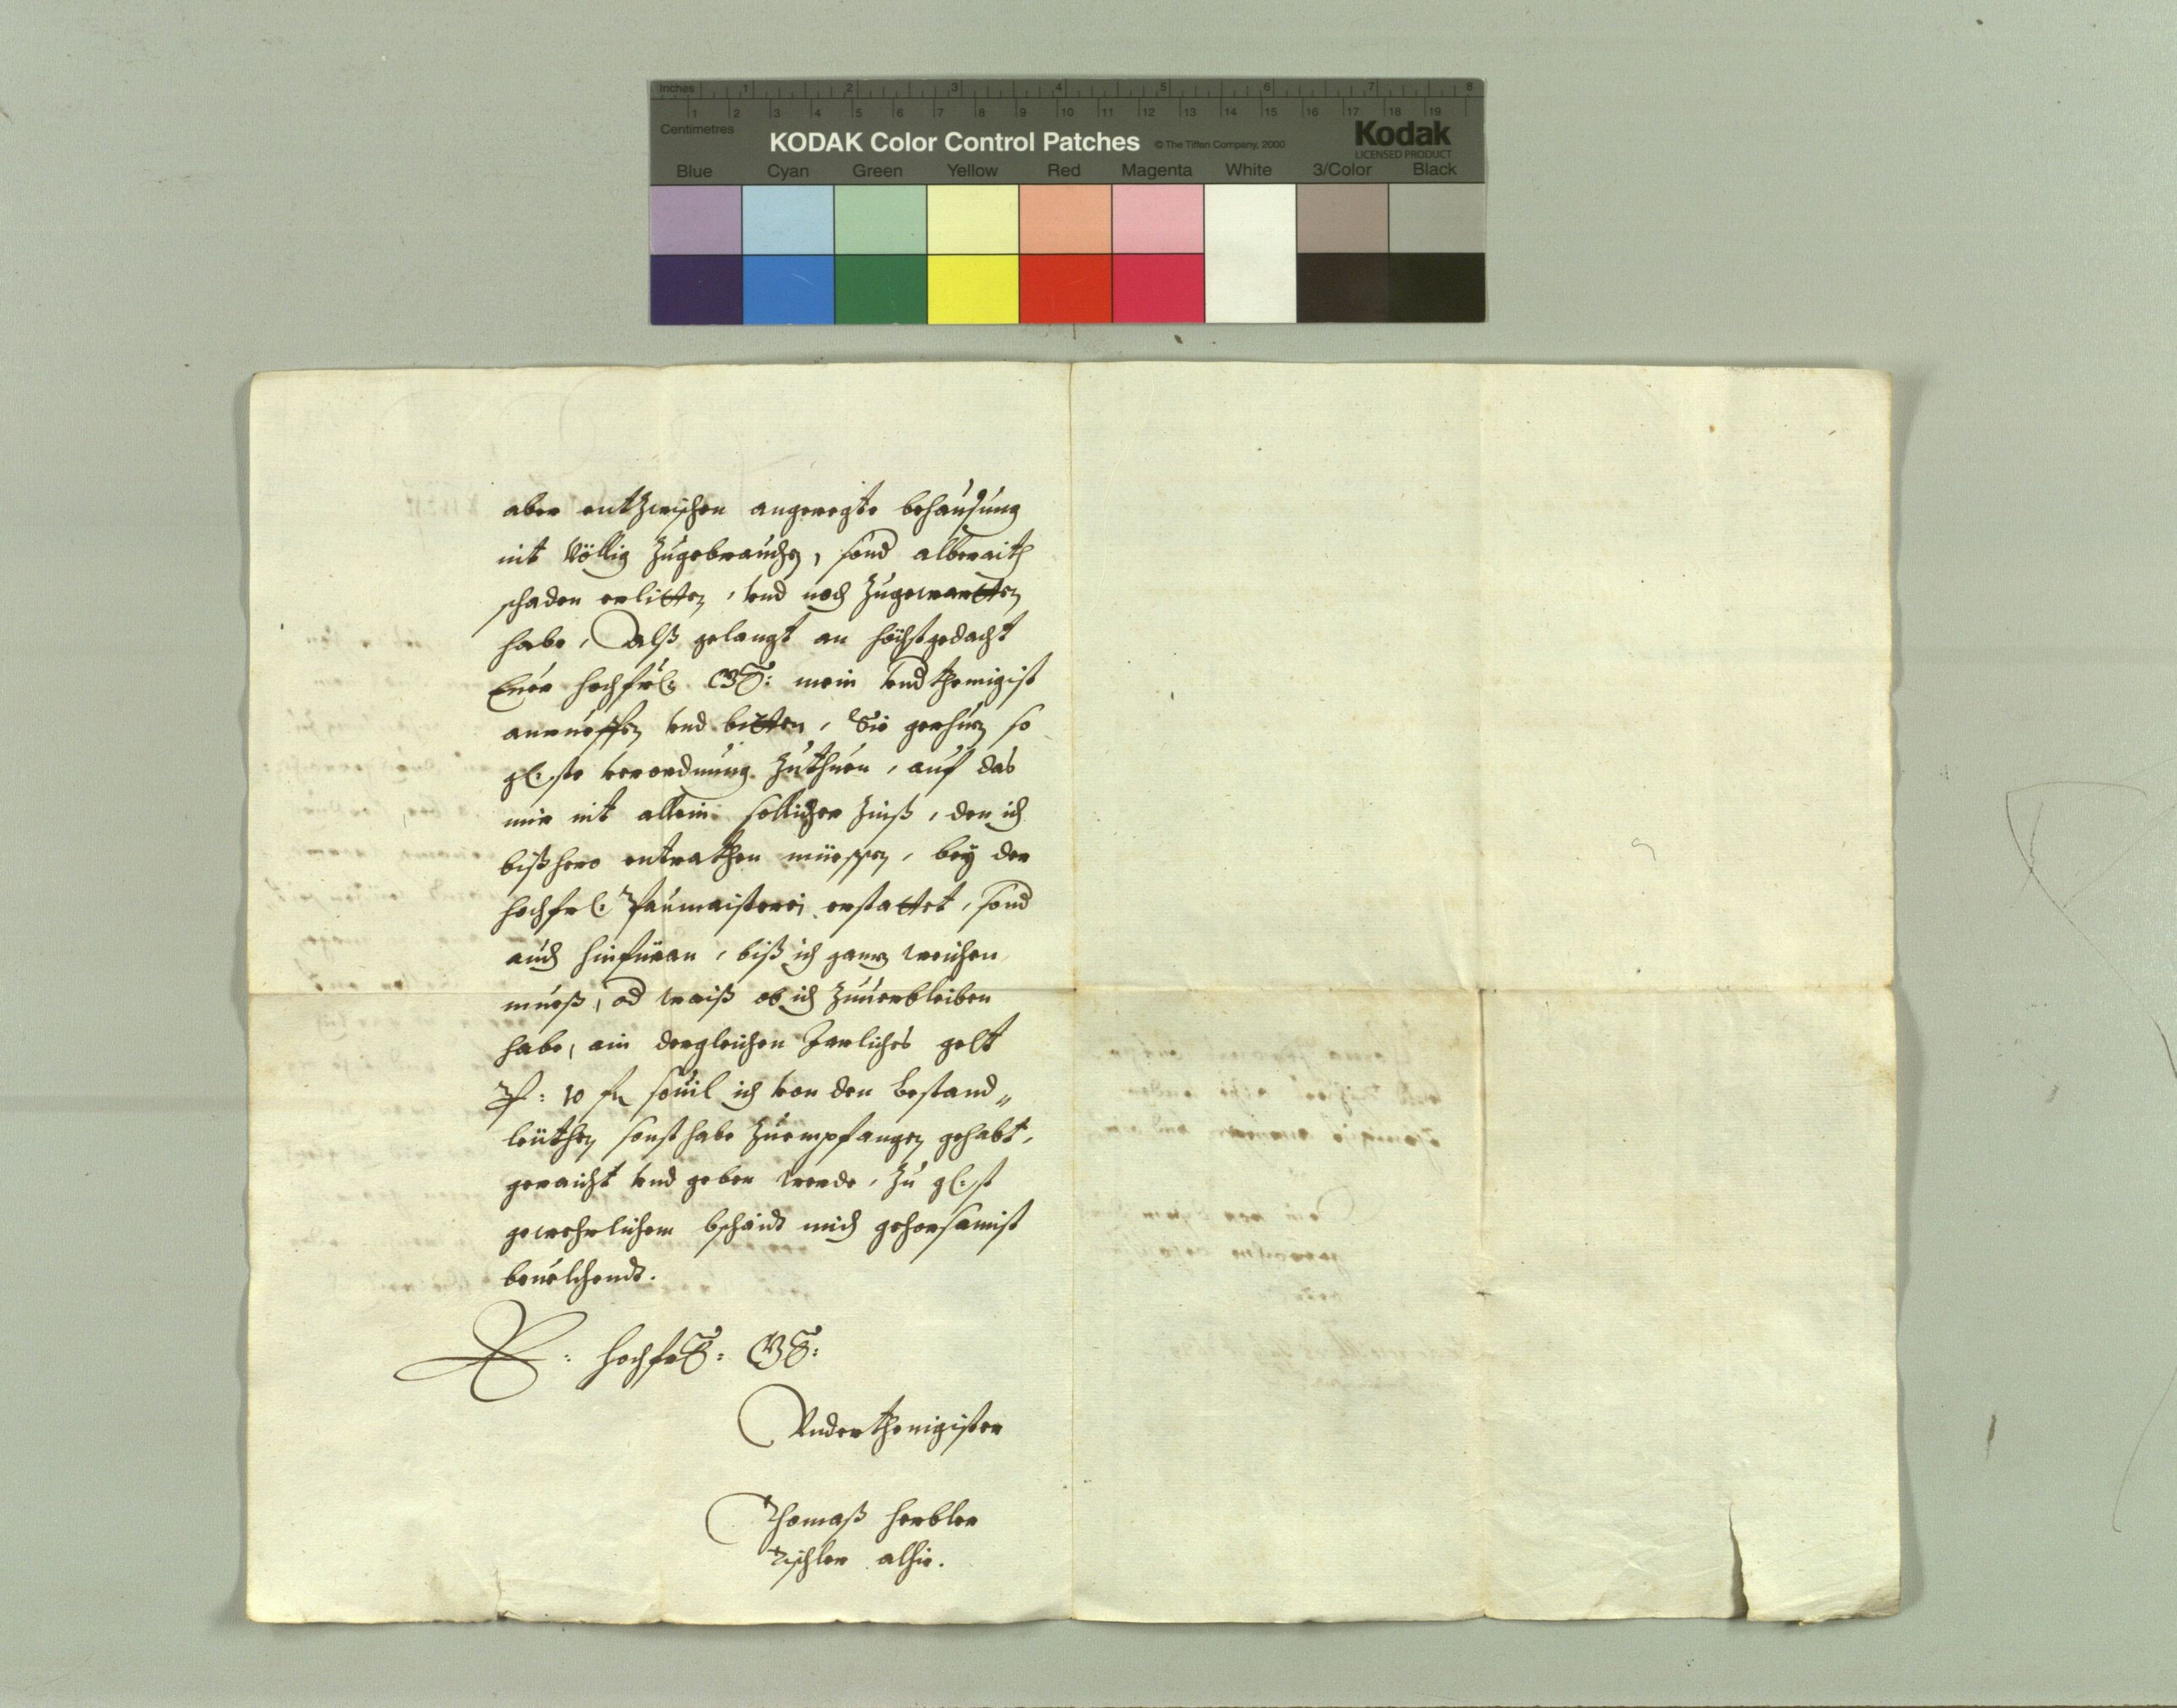 Inches 1 2 3 4 5 6 7 8
1 2 3 4 5 6 7 8 9 10 11 12 13 14 15 16 17 18 19
Centimetres
KODAK Color Control Patches © The Tiffen Company, 2000 Kodak
LICENSED PRODUCT
Blue Cyan Green Yellow Red Magenta White 3/Color Black
aber entzwischen angeregte behausung
nit völlig zugebrauchen, sond alberaith
schaden erlitten, vnd noch zugewartten
habe, Alß gelangt an höchstgedacht
Euer hochfrl: Gd: mein vnderthenigist
anrueffen vnd bitten, Die geruhen so
gl:ste verordnung zuthuen, auf das
mir nit allein sollicher Zinß, den ich
bißhero entrathen müessen, bey der
hochfrl: Paumaisterei erstattet, sond
auch hinfüran, biß ich ganz weichen
mueß, od waiß ob ich zuuerbleiben
habe, ain dergleichen Jarliches gelt
Pr: 10 fl souil ich von den bestand„
leüthen sonst habe zuempfangen gehabt,
geraicht vnd geben werde, Zu gl:st
gewehrlichem bschaidt mich gehorsamist
beuelchendt.
E: hochfrl: Gd:
Vnderthenigister
Thomaß
Tischler alhie.